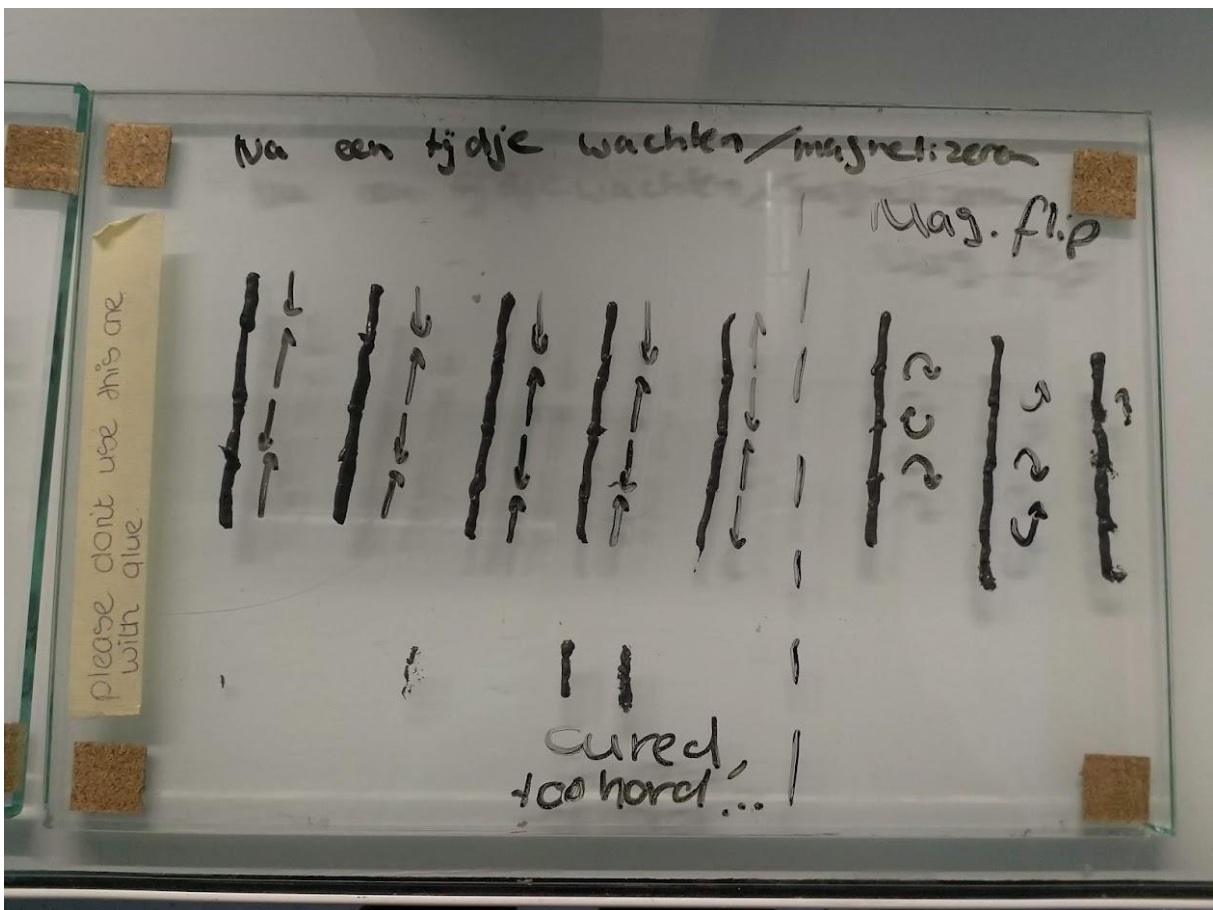 Na een tijdje wachten/magnetizeren
Mag. flip
please don't use this one
with glue.
cured,
too hard...